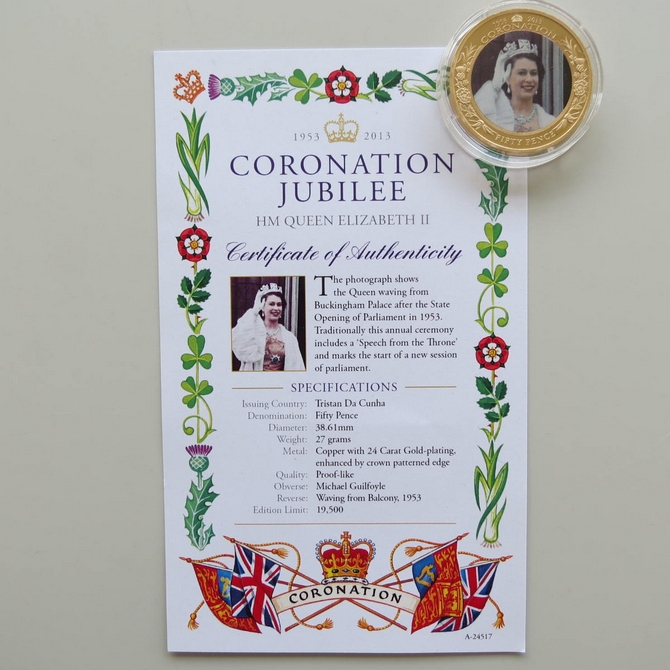 1953 2013
CORONATION
FIFTY PENCE
1953 2013
CORONATION
JUBILEE
HM QUEEN ELIZABETH II
Certificate of Authenticity
The photograph shows
the Queen waving from
Buckingham Palace after the State
Opening of Parliament in 1953.
Traditionally this annual ceremony
includes a ‘Speech from the Throne’
and marks the start of a new session
of parliament.
SPECIFICATIONS
Issuing Country: Tristan Da Cunha
Denomination: Fifty Pence
Diameter: 38.61mm
Weight: 27 grams
Metal: Copper with 24 Carat Gold-plating,
enhanced by crown patterned edge
Quality: Proof-like
Obverse: Michael Guilfoyle
Reverse: Waving from Balcony, 1953
Edition Limit: 19,500
CORONATION
A-24517